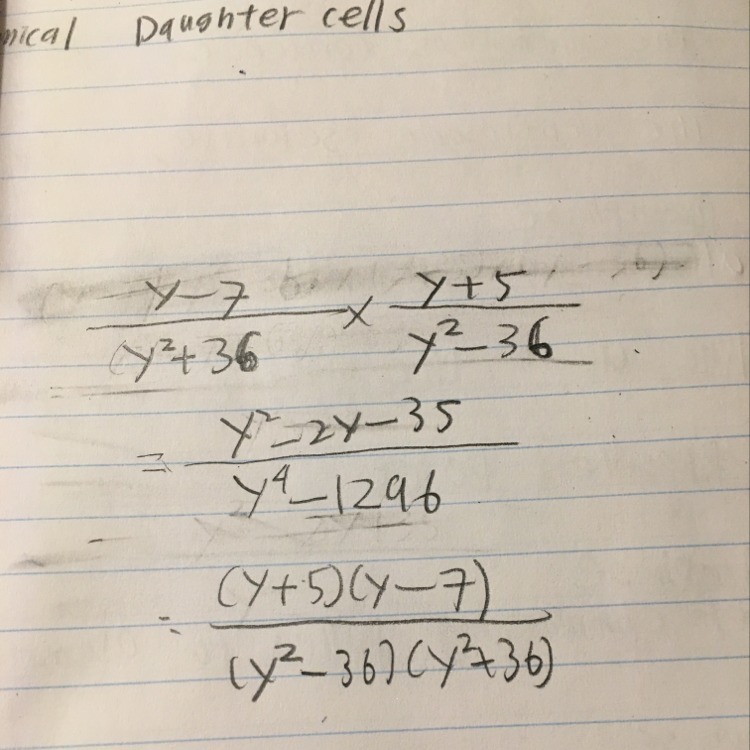 Daughter cells
y-7/(y²+36 × y+5/y²-36
= y²-2y-35/y⁴-1296
= (y+5)(y-7)/(y²-36)(y²+36)